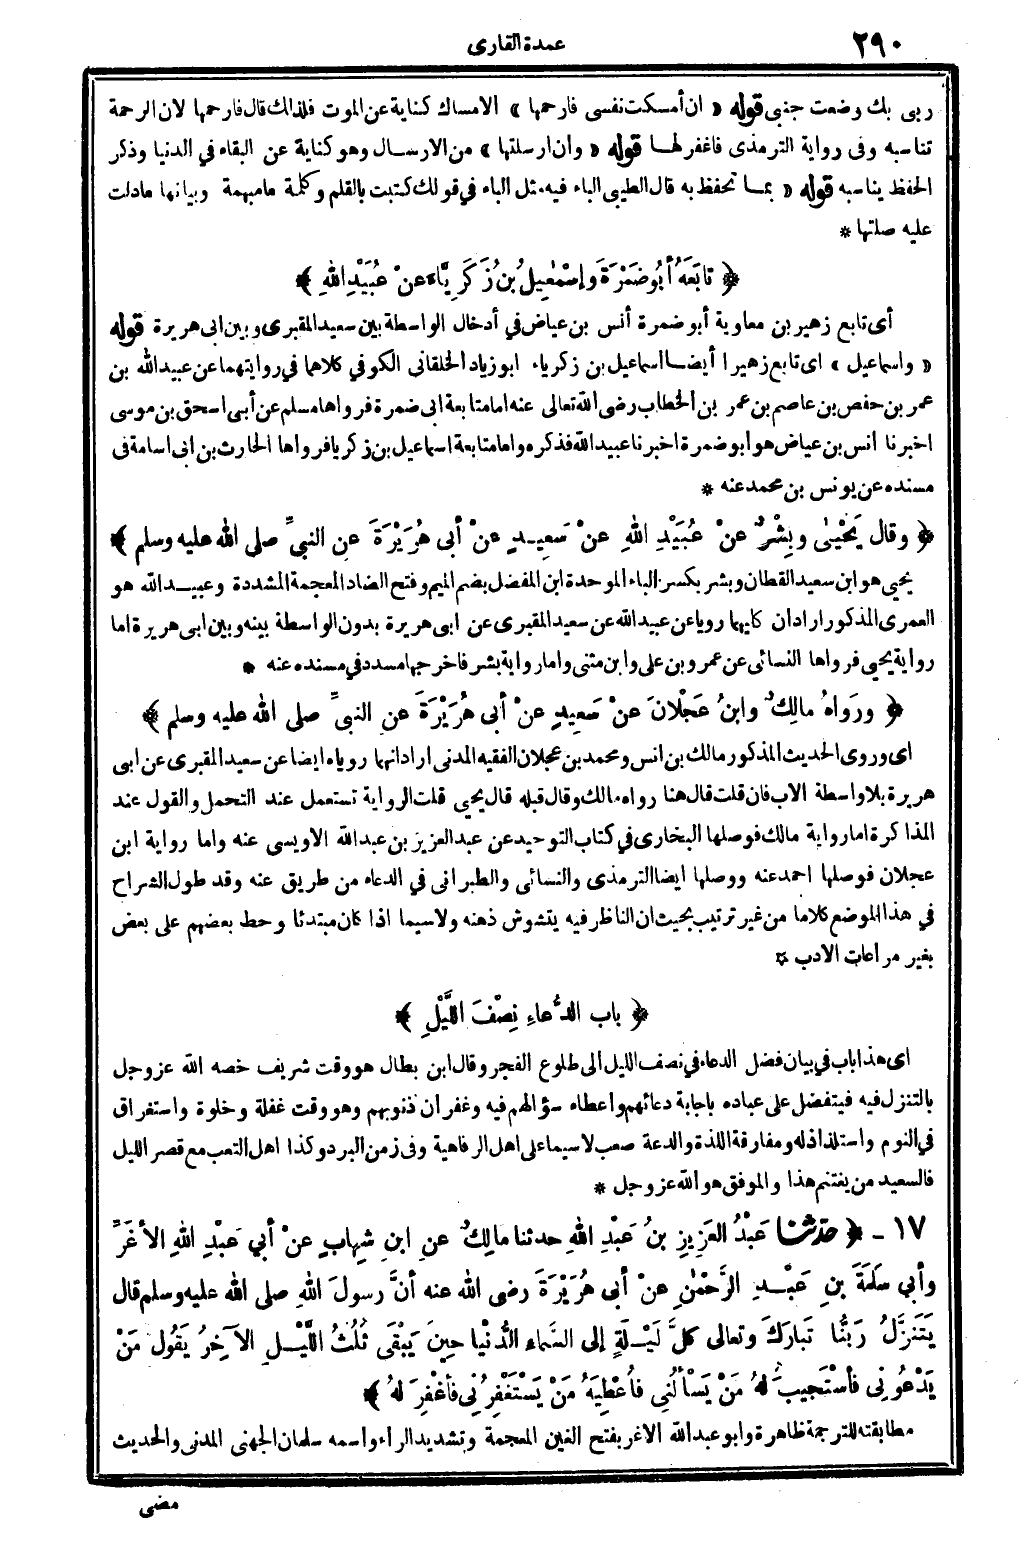 ٢٩٠
عمدة القارى
ربى بك وضعت جنبى قوله « ان أمسكت نفسى فارحمها » الامساك كناية عن الموت فلذالك قال فارحمها لان الرحمة
تناسبه وفى رواية الترمذى فاغفر لها قوله « وأن ارسلتها » من الارسال وهو كناية عن البقاء في الدنيا وذكر
الحفظ يناسبه قوله « بما تحفظ به قال الطيبى الباء فيه مثل الباء في قولك كتبت بالقلم وكلمة ما مبهمة وبيانها مادلت
عليه صلتها *
﴿ تابَعَهُ أبُو ضَمْرَةَ وإسْمٰعِيلُ بنُ زَكَرِيَّاءَ عنْ عُبَيْدِ اللهِ ﴾
أى تابع زهير بن معاوية أبو ضمرة أنس بن عياض في أدخال الواسطة بين سعيد المقبرى وبين ابى هريرة قوله
« واسماعيل » اى تابع زهيرا أيضا اسماعيل بن زكرياء ابو زياد الخلقانى الكوفي كلاهما في روايتهما عن عبيد الله بن
عمر بن حفص بن عاصم بن عمر بن الخطاب رضى الله تعالى عنه اما متابعة ابى ضمرة فرواها مسلم عن أبى اسحق بن موسى
اخبرنا انس بن عياض هو أبو ضمرة اخبرنا عبيد الله فذكره واما متابعة اسماعيل بن زكريا فرواها الحارث بن ابى اسامة فى
مسنده عن يونس بن محمد عنه *
﴿ وقال يَحْيىٰ وبِشْرٌ عنْ عُبَيْدِ اللهِ عنْ سَعِيدٍ عنْ أبى هُرَيْرَةَ عنِ النبىِّ صلى الله عليه وسلم ﴾
يحيى هو ابن سعيد القطان وبشر بكسر الباء الموحدة ابن المفضل بضم الميم وفتح الضاد المعجمة المشددة وعبيد الله هو
العمرى المذكور ارادان كليهما رويا عن عبيد الله عن سعيد المقبرى عن ابى هريرة بدون الواسطة بينه وبين ابى هريرة اما
رواية يحيى فرواها النسائى عن عمرو بن على وابن مثنى واما رواية بشر فاخرجها مسدد في مسنده عنه *
﴿ ورَواهُ مالِكٌ وابنُ عَجْلانَ عنْ سَعِيدٍ عنْ أبى هُرَيْرَةَ عنِ النبىِّ صلى الله عليه وسلم ﴾
اى وروى الحديث المذكور مالك بن انس ومحمد بن عجلان الفقيه المدنى ارادانهما روياه ايضا عن سعيد المقبرى عن ابى
هريرة بلا واسطة الاب فان قلت قال هنا رواه مالك وقال قبله قال يحيى قلت الرواية تستعمل عند التحمل والقول عند
المذاكرة اما رواية مالك فوصلها البخارى في كتاب التوحيد عن عبد العزيز بن عبد الله الاويسى عنه واما رواية ابن
عجلان فوصلها احمد عنه ووصلها ايضا الترمذى والنسائى والطبرانى في الدعاء من طريق عنه وقد طول الشراح
في هذا الموضع كلاما من غير ترتيب بحيث ان الناظر فيه يتشوش ذهنه ولا سيما اذا كان مبتدئا وحط بعضهم على بعض
بغير مراعات الادب *
﴿ باب الدُّعاءِ نِصْفَ اللَّيْلِ ﴾
اى هذا باب في بيان فضل الدعاء في نصف الليل الى طلوع الفجر وقال ابن بطال هو وقت شريف خصه الله عز وجل
بالتنزل فيه فيتفضل على عباده باجابة دعائهم واعطاء سؤالهم فيه وغفران ذنوبهم وهو وقت غفلة وخلوة واستغراق
في النوم واستلذاذ له ومفارقة اللذة والدعة صعب لا سيما على اهل الرفاهية وفى زمن البرد وكذا اهل التعب مع قصر الليل
فالسعيد من يغتنم هذا والموفق هو الله عز وجل *
١٧ - ﴿ حدثنا عَبْدُ العَزِيزِ بنُ عَبْدِ اللهِ حدثنا مالِكٌ عنِ ابنِ شِهابٍ عنْ أبي عَبْدِ اللهِ الأغَرِّ
وأبي سَلَمَةَ بنِ عَبْدِ الرَّحْمٰنِ عنْ أبى هُرَيْرَةَ رضى الله عنه أنَّ رسولَ اللهِ صلى الله عليه وسلم قال
يَتَنَزَّلُ رَبُّنا تَبارَكَ وتعالى كلَّ لَيْلَةٍ إلى السَّماءِ الدُّنْيا حِينَ يَبْقَى ثُلُثُ اللَّيْلِ الآخِرُ يَقُولُ مَنْ
يَدْعُونِى فأسْتَجِيبَ لهُ مَنْ يَسْألُنِى فأُعْطِيَهُ مَنْ يَسْتَغْفِرُنِى فأغْفِرَ لهُ ﴾
مطابقته للترجمة ظاهرة وابو عبد الله الاغر بفتح الغين المعجمة وتشديد الراء واسمه سلمان الجهنى المدنى والحديث
مضى